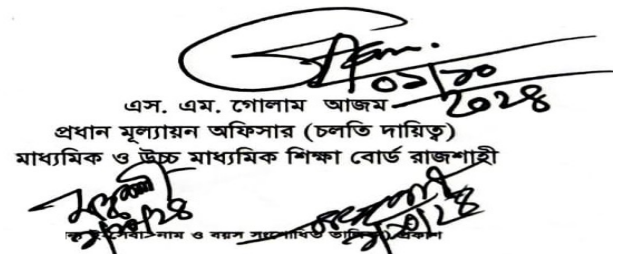 ০১/১০
২০২৪
এস. এম. গোলাম আজম
প্রধান মূল্যায়ন অফিসার (চলতি দায়িত্ব)
মাধ্যমিক ও উচ্চ মাধ্যমিক শিক্ষা বোর্ড রাজশাহী
নাম ও বয়স সংশোধিত প্রকাশ